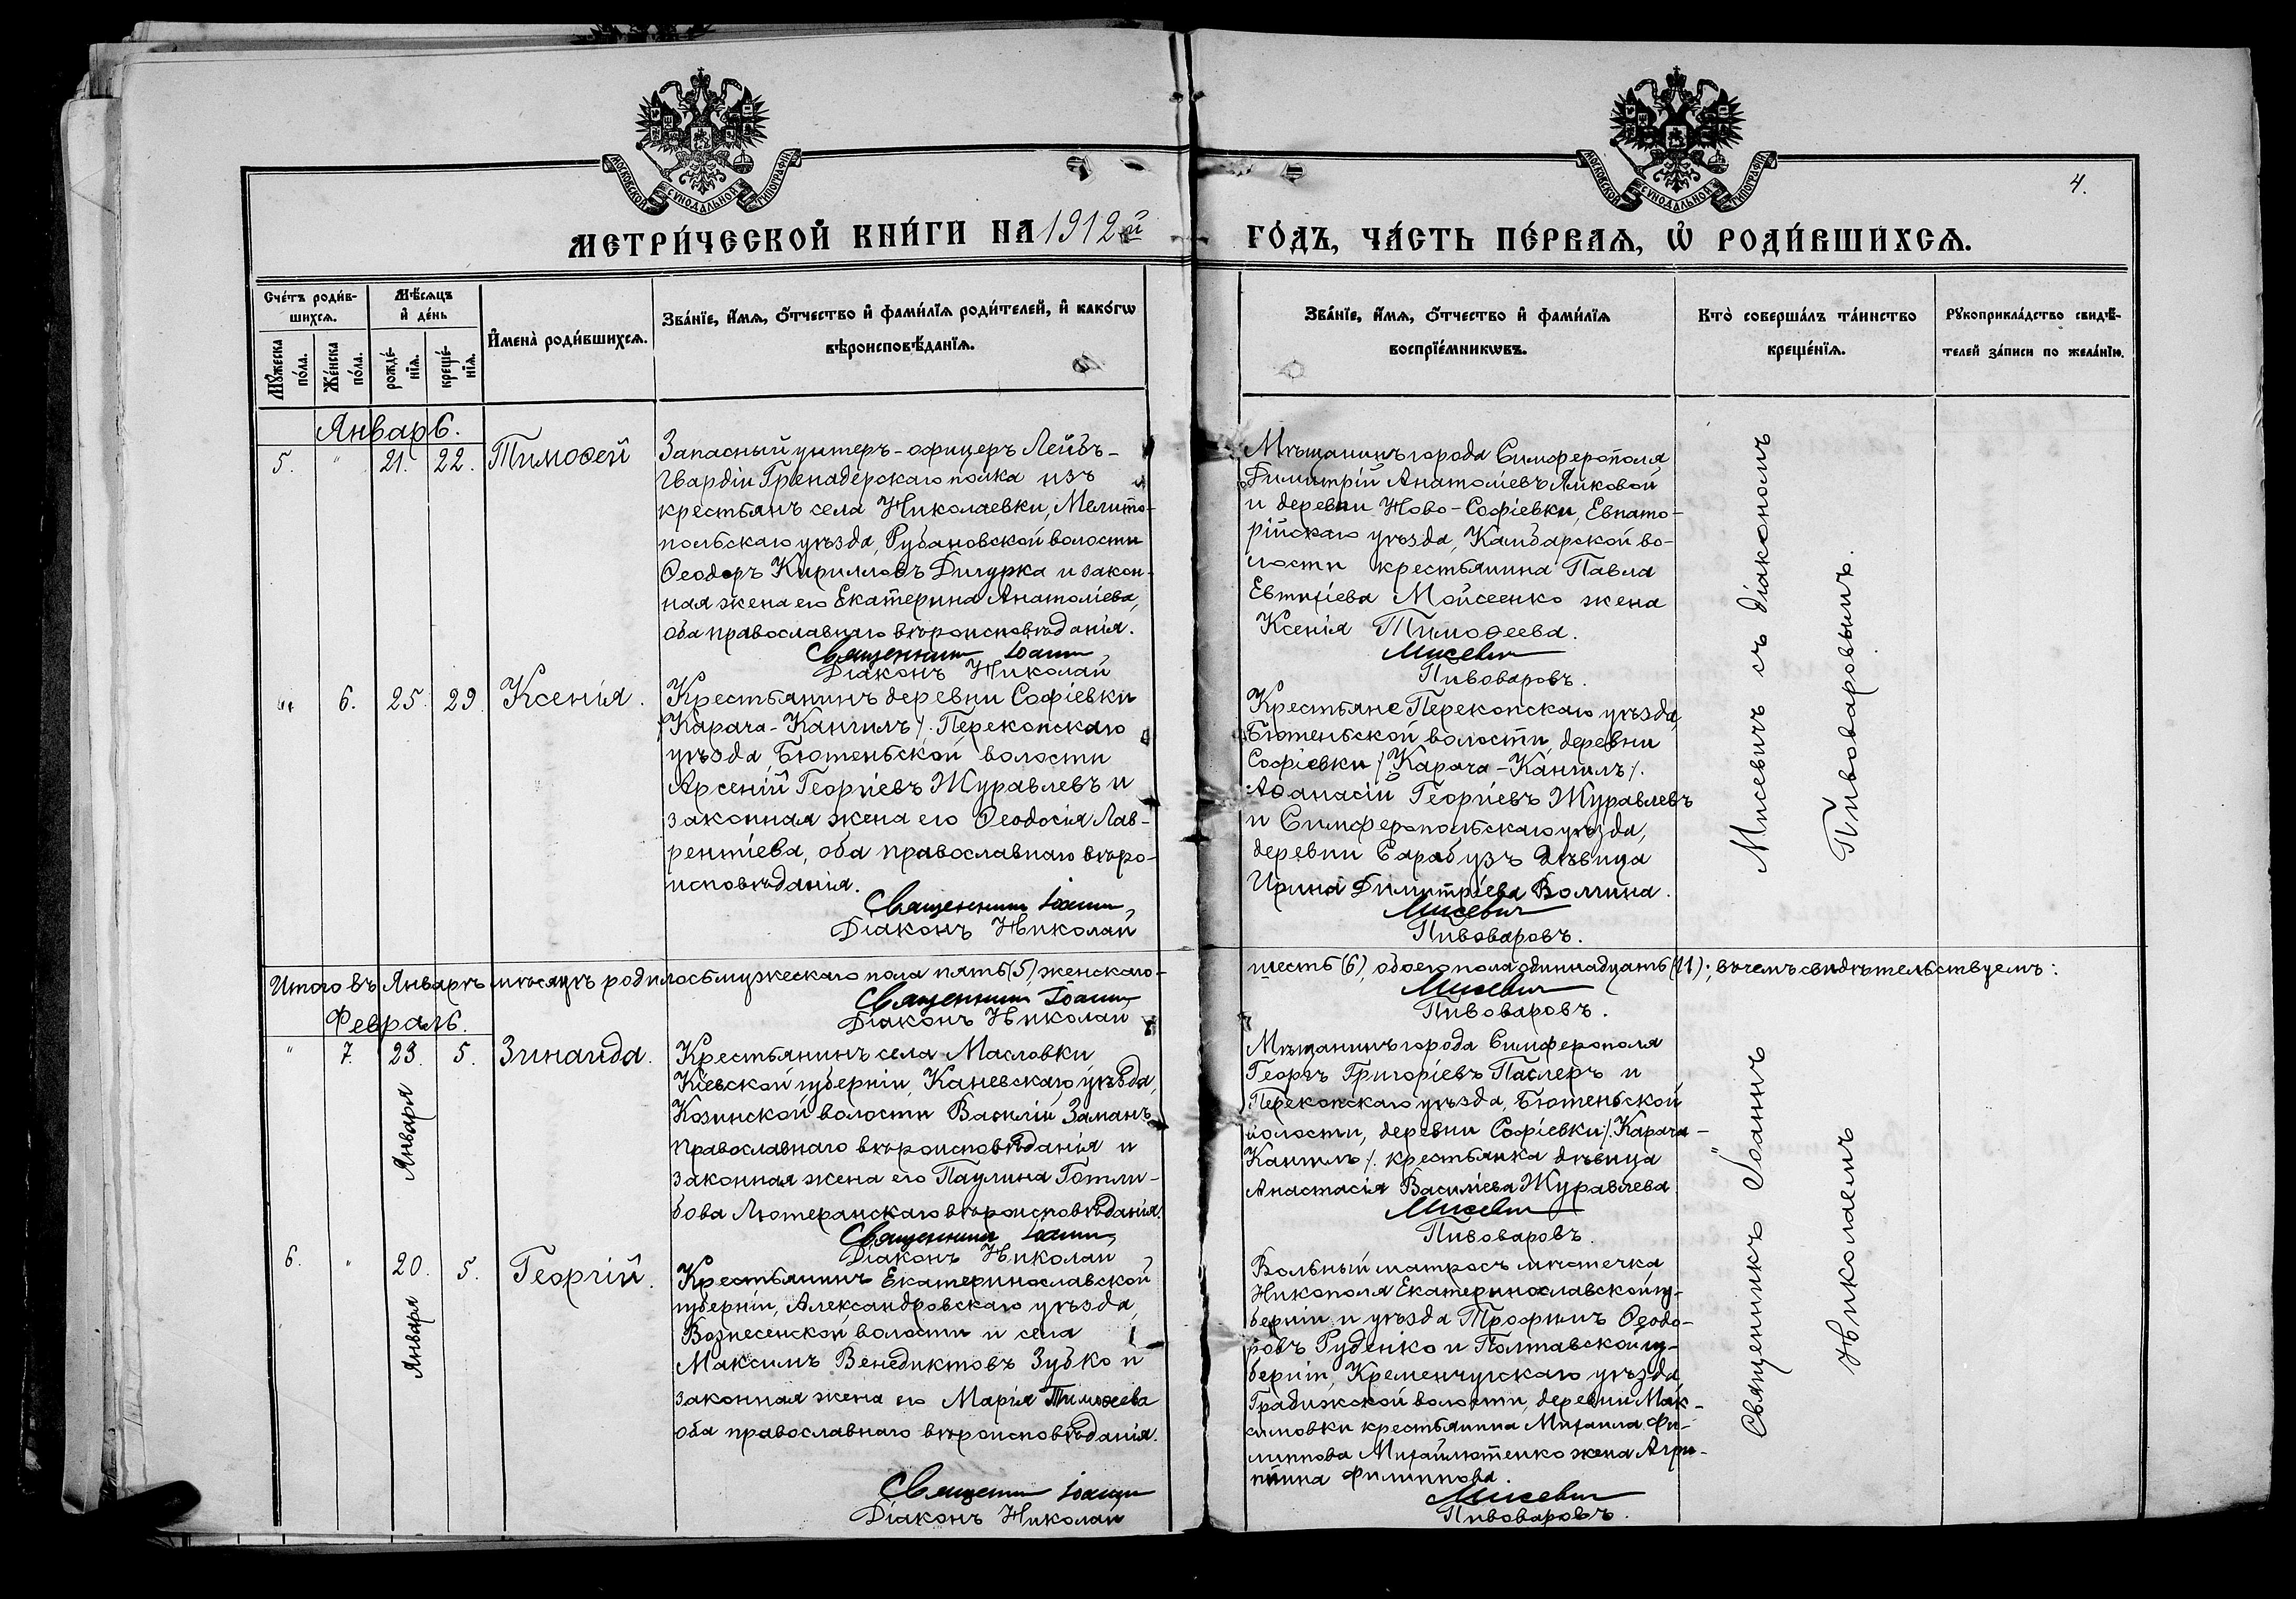 МОСКОВСКОЙ СѴНОДАЛЬНОЙ ТИПОГРАФІИ
МОСКОВСКОЙ СѴНОДАЛЬНОЙ ТИПОГРАФІИ
4.
МЕТРИ́ЧЕСКОЙ КНИ́ГИ НА 1912й ГО́ДЪ, ЧА́СТЬ ПЕ́РВАѦ, Ѽ РОДИ́ВШИХСѦ.
Сче́тъ роди́в-
шихсѧ.
Мѣ́сѧцъ
и҆ де́нь
Мꙋ́жеска
по́ла.
Же́нска
по́ла.
рожде́-
нїѧ.
креще́-
нїѧ.
И҆мена̀ роди́вшихсѧ.
Зва́нїе, и҆́мѧ, ѻ҆́тчество и҆ фами́лїѧ роди́телей, и҆ како́гѡ
вѣроисповѣ́данїѧ.
Зва́нїе, и҆́мѧ, ѻ҆́тчество и҆ фами́лїѧ
воспрїе́мникѡвъ.
Кто̀ соверша́лъ та́инство
креще́нїѧ.
Рꙋкоприкла́дство свидѣ́-
телей за́писи по жела́нїю.
Январь.
5. " 21. 22. Тимоѳей
Запасный унтеръ-офицеръ Лейбъ-
Гвардіи Гренадерскаго полка изъ
крестьянъ села Николаевки, Мелито-
польскаго уѣзда, Рубановской волости
Ѳеодоръ Кирилловъ Дигурка и закон-
ная жена его Екатерина Анатоліева,
оба православнаго вѣроисповѣданія.
Священникъ Іоаннъ
Діаконъ Николай
Мѣщанинъ города Симферополя
Димитрій Анатоліевъ Ликовой
и деревни Ново-Софіевки, Евпато-
рійскаго уѣзда, Камбарской во-
лости крестьянина Павла
Евтихіева Мойсеенко жена
Ксенія Тимоѳеева.
Мисевичъ
Пивоваровъ.
" 6. 25. 29. Ксенія.
Крестьянинъ деревни Софіевки
/Карача-Кангилъ/. Перекопскаго
уѣзда, Бютеньской волости
Арсеній Георгіевъ Журавлевъ и
законная жена его Ѳеодосія Лав-
рентіева, оба православнаго вѣро-
исповѣданія.
Священникъ Іоаннъ,
Діаконъ Николай
Крестьяне Перекопскаго уѣзда,
Бютеньской волости, деревни
Софіевки /Карача-Кангилъ/.
Аѳанасій Георгіевъ Журавлевъ
и Симферопольскаго уѣзда,
деревни Сарабузъ дѣвица
Ирина Димитріева Волчина.
Мисевичъ
Пивоваровъ.
Итого въ Январѣ мѣсяцѣ родилось мужескаго пола пять (5), женскаго-
шесть (6), обоего пола одиннадцать (11); въ чемъ свидѣтельствуемъ:
Священникъ Іоаннъ
Діаконъ Николай
Мисевичъ
Пивоваровъ.
Февраль.
" 7. 23. Января 5. Зинаида.
Крестьянинъ села Масловки
Кіевской губерніи, Каневскаго уѣзда,
Козинской волости Василій Заманъ
православнаго вѣроисповѣданія и
законная жена его Паулина Готли-
бова Лютеранскаго вѣроисповѣданія.
Священникъ Іоаннъ,
Діаконъ Николай
Мѣщанинъ города Симферополя
Георгъ Григоріевъ Паслеръ и
Перекопскаго уѣзда, Бютеньской
волости, деревни Софіевки /.Карача-
Кангилъ/. крестьянка дѣвица
Анастасія Василіева Журавлева
Мисевичъ
Пивоваровъ.
6. " 20. Января 5. Георгій.
Крестьянинъ Екатеринославской
губерніи, Александровскаго уѣзда,
Вознесенской волости и села
Максимъ Венедиктовъ Зубко и
законная жена его Марія Тимоѳеева
оба православнаго вѣроисповѣданія.
Священникъ Іоаннъ
Діаконъ Николай
Вольный матросъ мѣстечка
Никополя Екатеринославской гу-
берніи и уѣзда Трофимъ Ѳеодо-
ровъ Руденко и Полтавской гу-
берніи, Кременчугскаго уѣзда,
Градижской волости, деревни Мак-
симовки крестьянина Михаила Фи-
липпова Михайлютенко жена Агри-
пина Филиппова.
Мисевичъ
Пивоваровъ.
Священникъ Іоаннъ Мисевичъ съ діакономъ
Николаемъ Пивоваровымъ.